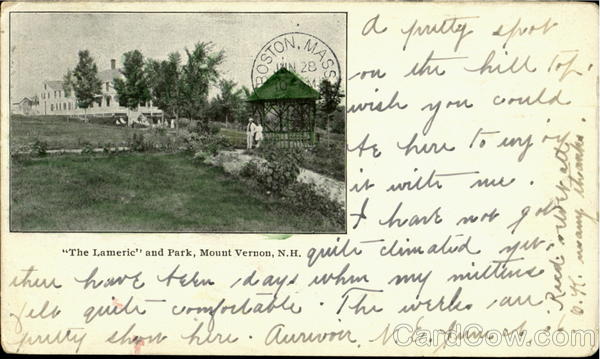 A pretty spot
on the hill top.
wish you could
be here to enjoy
it with me.
I have not got
"The Lameric" and Park, Mount Vernon, N.H. quite climated yet.
there have been days when my mittens
felt quite comfortable. The works are
pretty slow here. Aurevoir.
BOSTON, MASS.
JUN 28
O.K. many thanks.
CardCow.com